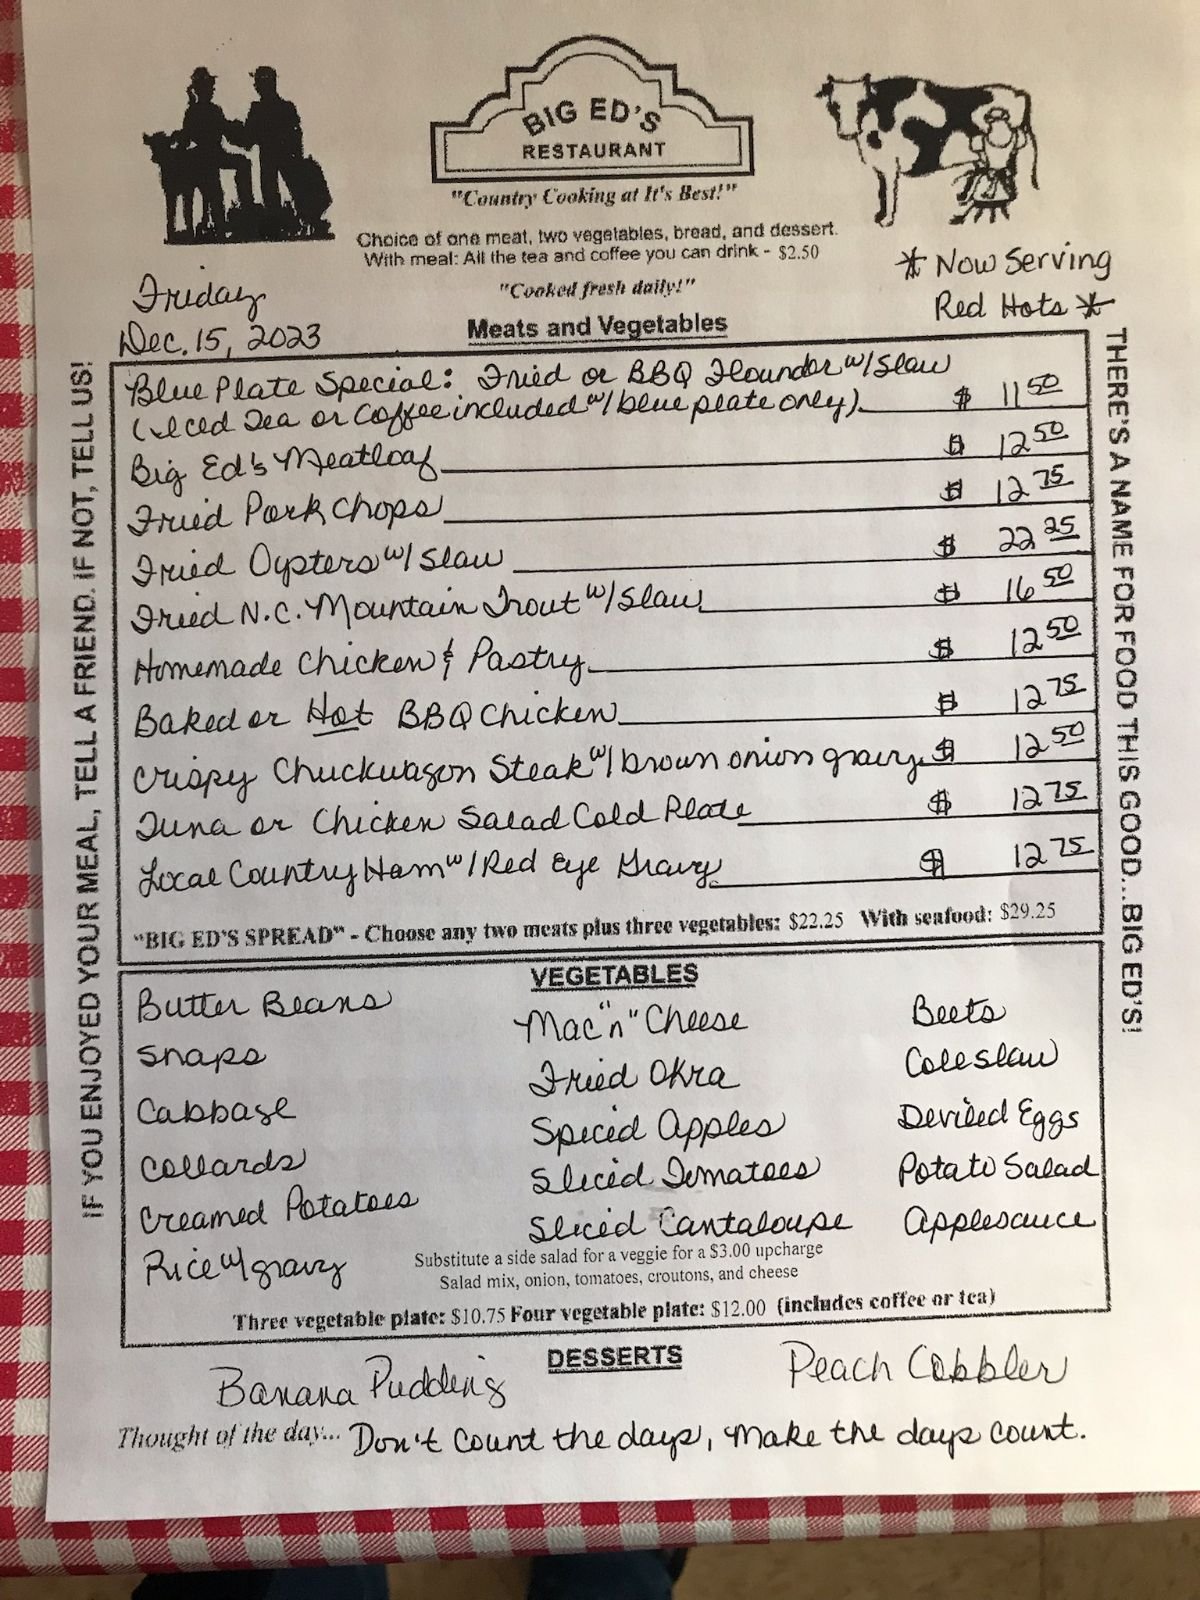 BIG ED'S
RESTAURANT
"Country Cooking at It's Best!"
Choice of one meat, two vegetables, bread, and dessert.
With meal: All the tea and coffee you can drink - $2.50
"Cooked fresh daily!"
* Now Serving
Red Hots *
Friday
Dec. 15, 2023
Meats and Vegetables
Blue Plate Special: Fried or BBQ Flounder w/ Slaw
(Iced Tea or Coffee included w/ blue plate only) $ 11 50
Big Ed's Meatloaf $ 12 50
Fried Pork Chops $ 12 75
Fried Oysters w/ Slaw $ 22 25
Fried N.C. Mountain Trout w/ Slaw $ 16 50
Homemade Chicken & Pastry $ 12 50
Baked or Hot BBQ Chicken $ 12 75
Crispy Chuckwagon Steak w/ brown onion gravy $ 12 50
Tuna or Chicken Salad Cold Plate $ 12 75
Local Country Ham w/ Red Eye Gravy $ 12 75
"BIG ED'S SPREAD" - Choose any two meats plus three vegetables: $22.25 With seafood: $29.25
VEGETABLES
Butter Beans
Snaps
Cabbage
Collards
Creamed Potatoes
Rice w/ gravy
Mac "n" Cheese
Fried Okra
Spiced Apples
Sliced Tomatoes
Sliced Cantaloupe
Beets
Coleslaw
Deviled Eggs
Potato Salad
Applesauce
Substitute a side salad for a veggie for a $3.00 upcharge
Salad mix, onion, tomatoes, croutons, and cheese
Three vegetable plate: $10.75 Four vegetable plate: $12.00 (includes coffee or tea)
DESSERTS
Banana Pudding
Peach Cobbler
Thought of the day... Don't count the days, make the days count.
IF YOU ENJOYED YOUR MEAL, TELL A FRIEND. IF NOT, TELL US!
THERE'S A NAME FOR FOOD THIS GOOD...BIG ED'S!